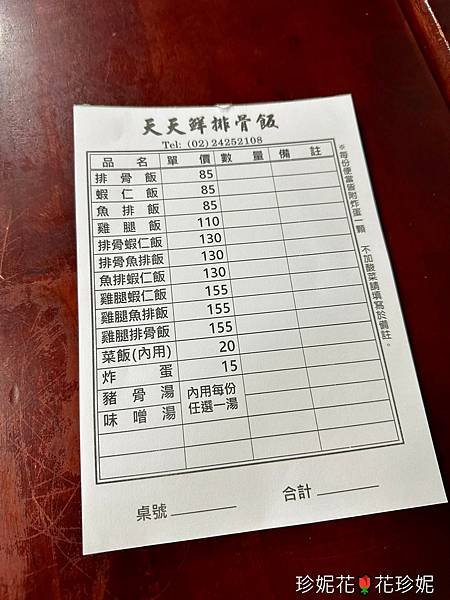 天天鮮排骨飯
Tel: (02) 24252108
品名 單價 數量 備註
排骨飯 85
蝦仁飯 85
魚排飯 85
雞腿飯 110
排骨蝦仁飯 130
排骨魚排飯 130
魚排蝦仁飯 130
雞腿蝦仁飯 155
雞腿魚排飯 155
雞腿排骨飯 155
菜飯(內用) 20
炸蛋 15
豬骨湯 內用每份
味噌湯 任選一湯
※每份便當皆附炸蛋一顆 不加酸菜請填寫於備註。
桌號 合計
珍妮花🌹花珍妮